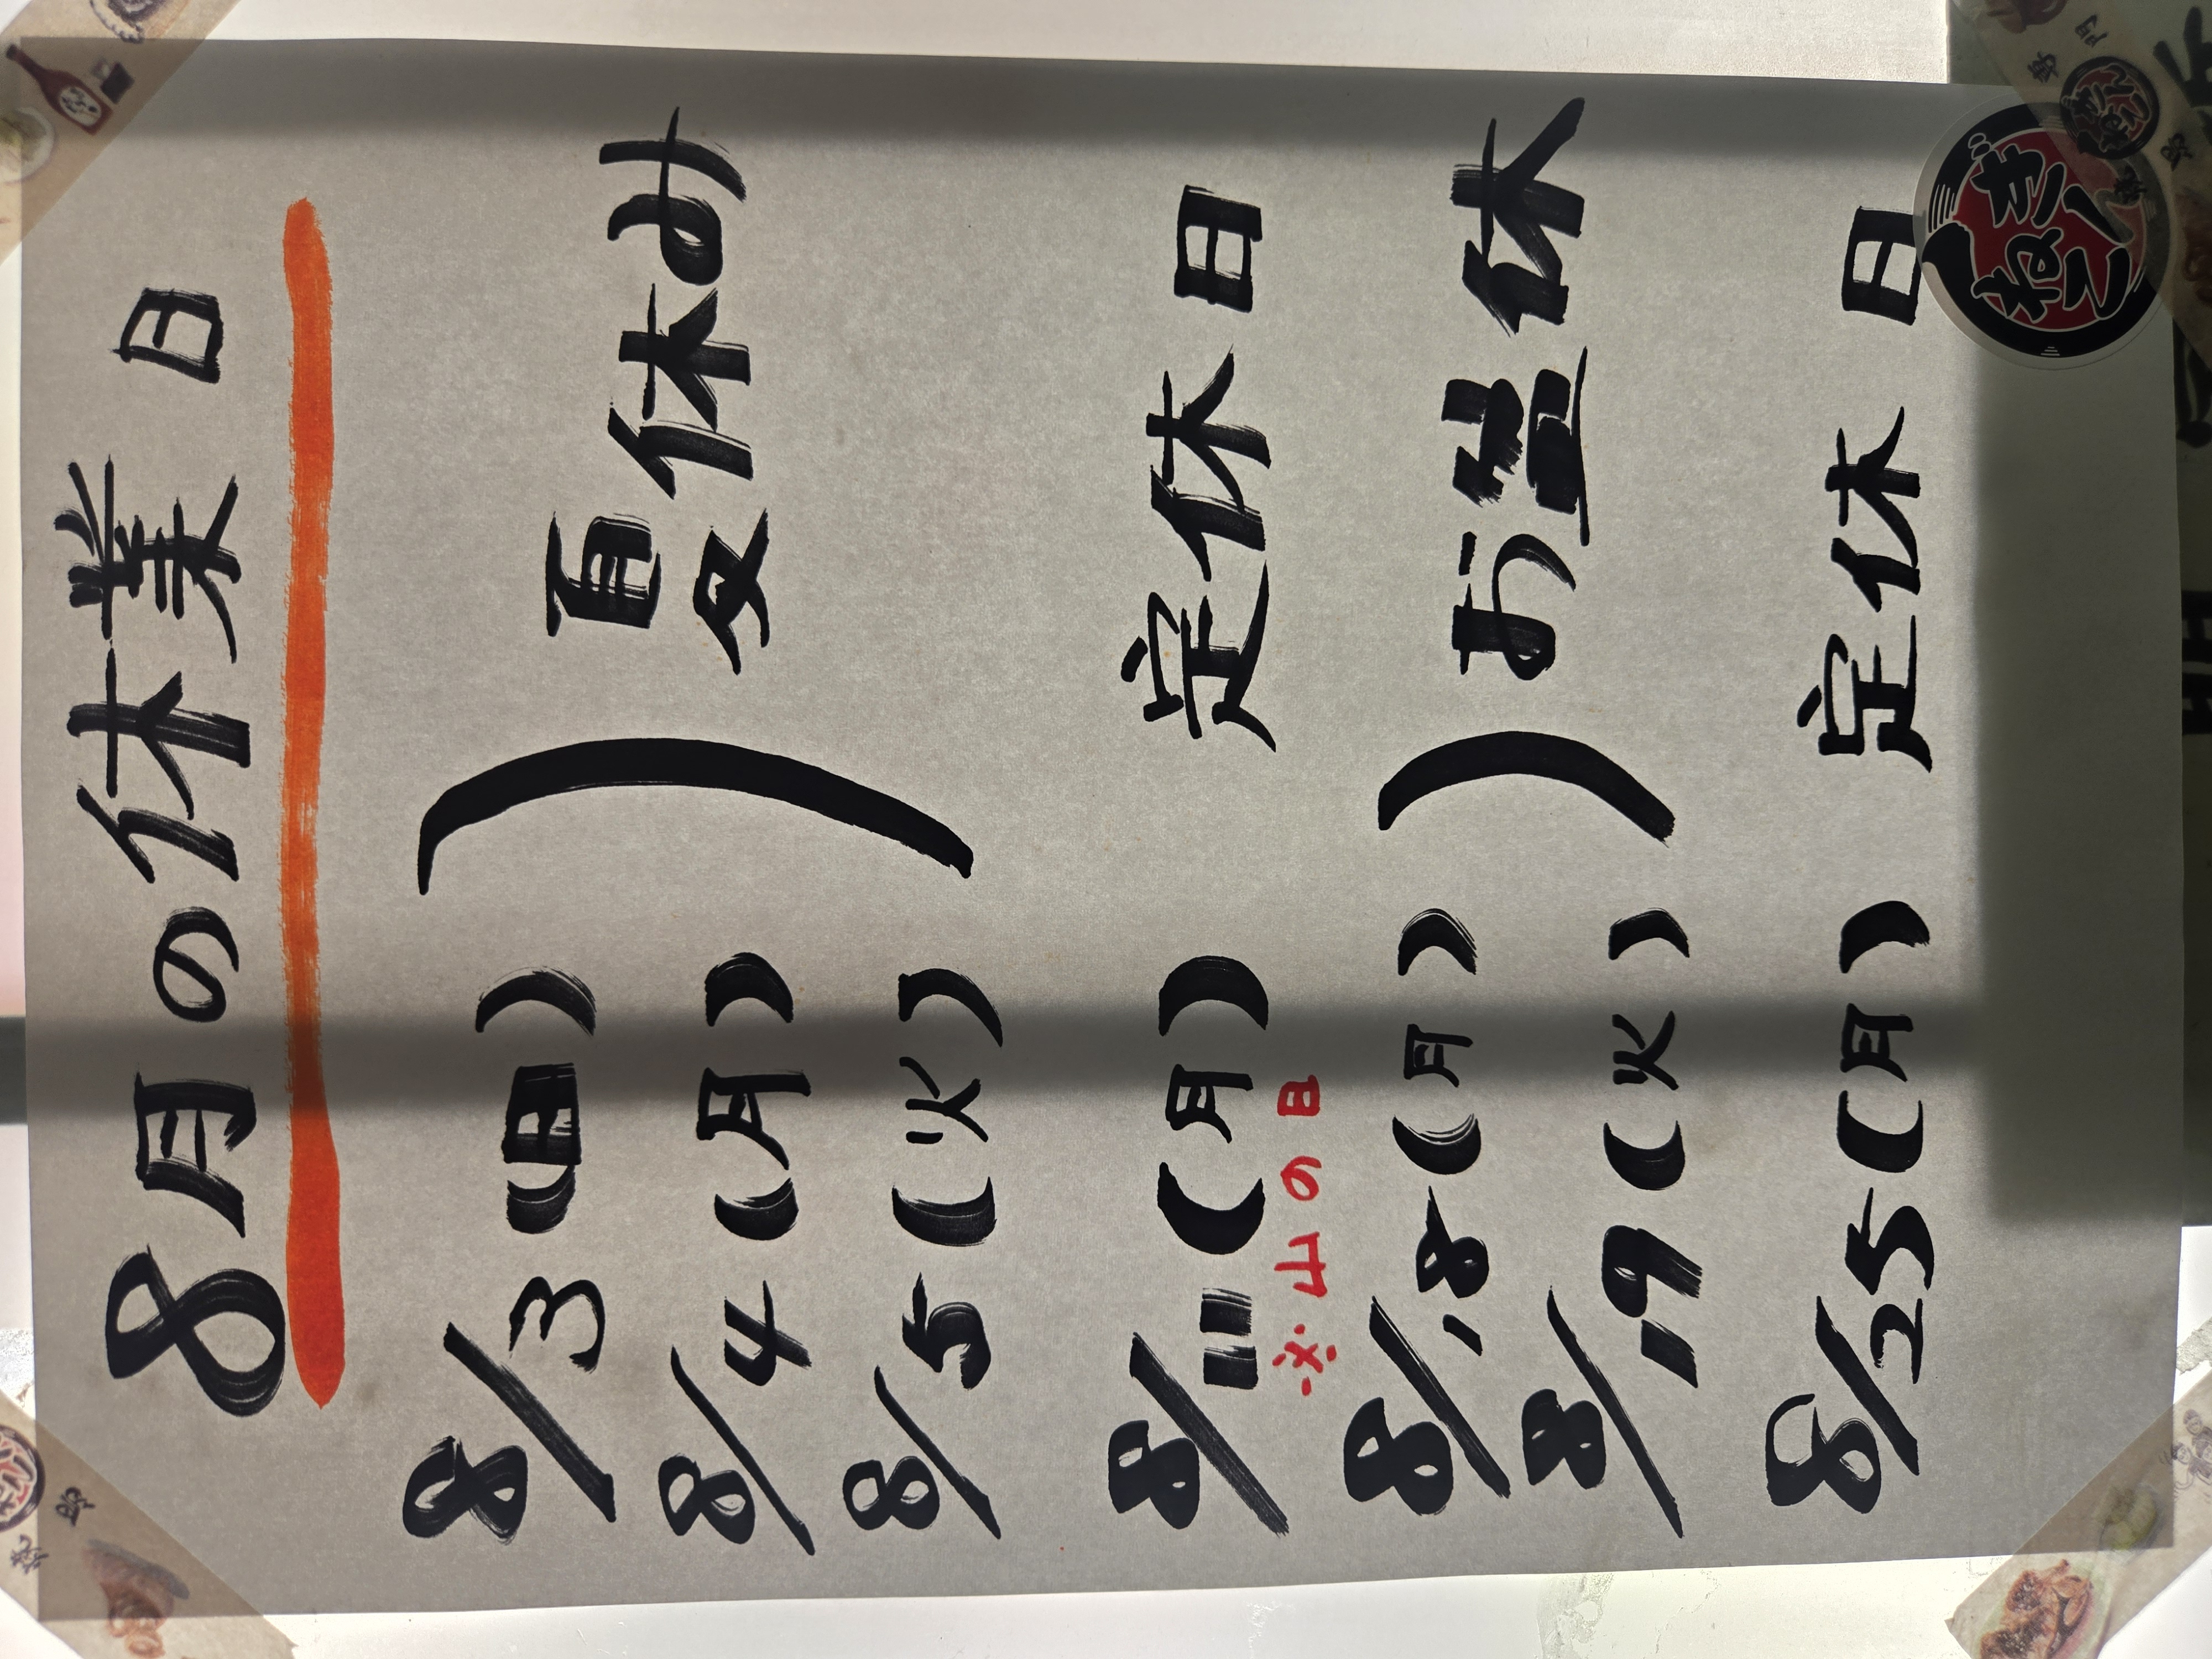 8月の休業日
8/3(日)
8/4(月) 夏休み
8/5(火)
8/11(月) 定休日
※山の日
8/18(月)
お盆休
8/19(火)
8/25(月) 定休日
ねぎ